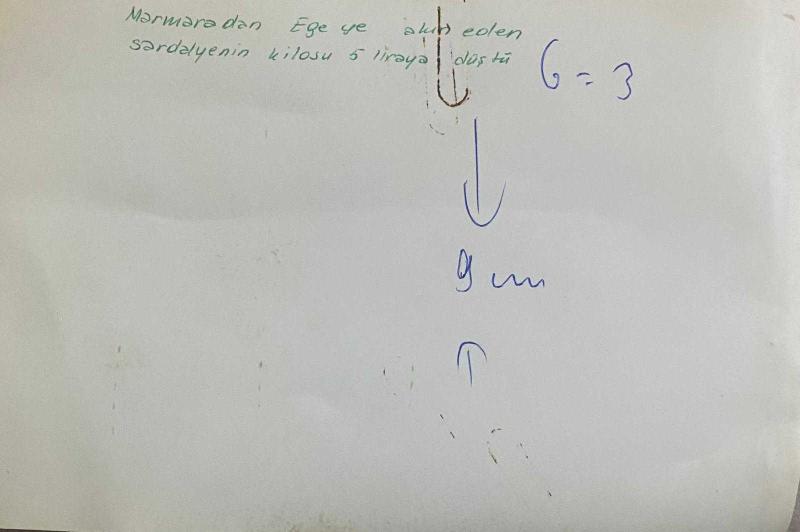 Marmaradan Ege ye akın eden
sardalyenin kilosu 5 liraya düştü
6 = 3
9 cm